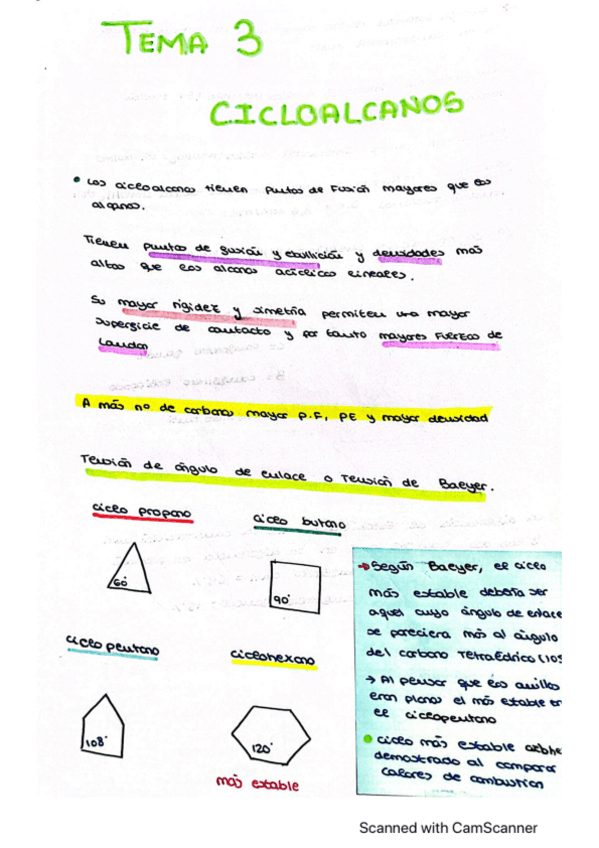 TEMA 3
CICLOALCANOS
• Los cicloalcanos tienen puntos de Fusión mayores que los
alcanos.
Tienen puntos de fusión y ebullición y densidades más
altos que los alcanos acíclicos lineales.
Su mayor rigidez y simetría permiten una mayor
superficie de contacto y por tanto mayores Fuerzas de
London
A más nº de carbonos mayor P.F, PE y mayor densidad
Tensión de ángulo de enlace o Tensión de Baeyer.
ciclo propano
ciclo butano
60°
90°
ciclo pentano
ciclohexano
108°
120°
más estable
→ Según Baeyer, el ciclo
más estable debería ser
aquel cuyo ángulo de enlace
se pareciera más al ángulo
del carbono Tetraédrico (109
→ Al pensar que los anillos
eran planos el más estable er
el ciclopentano
• ciclo más estable
demostrado al comparar
calores de combustión
Scanned with CamScanner